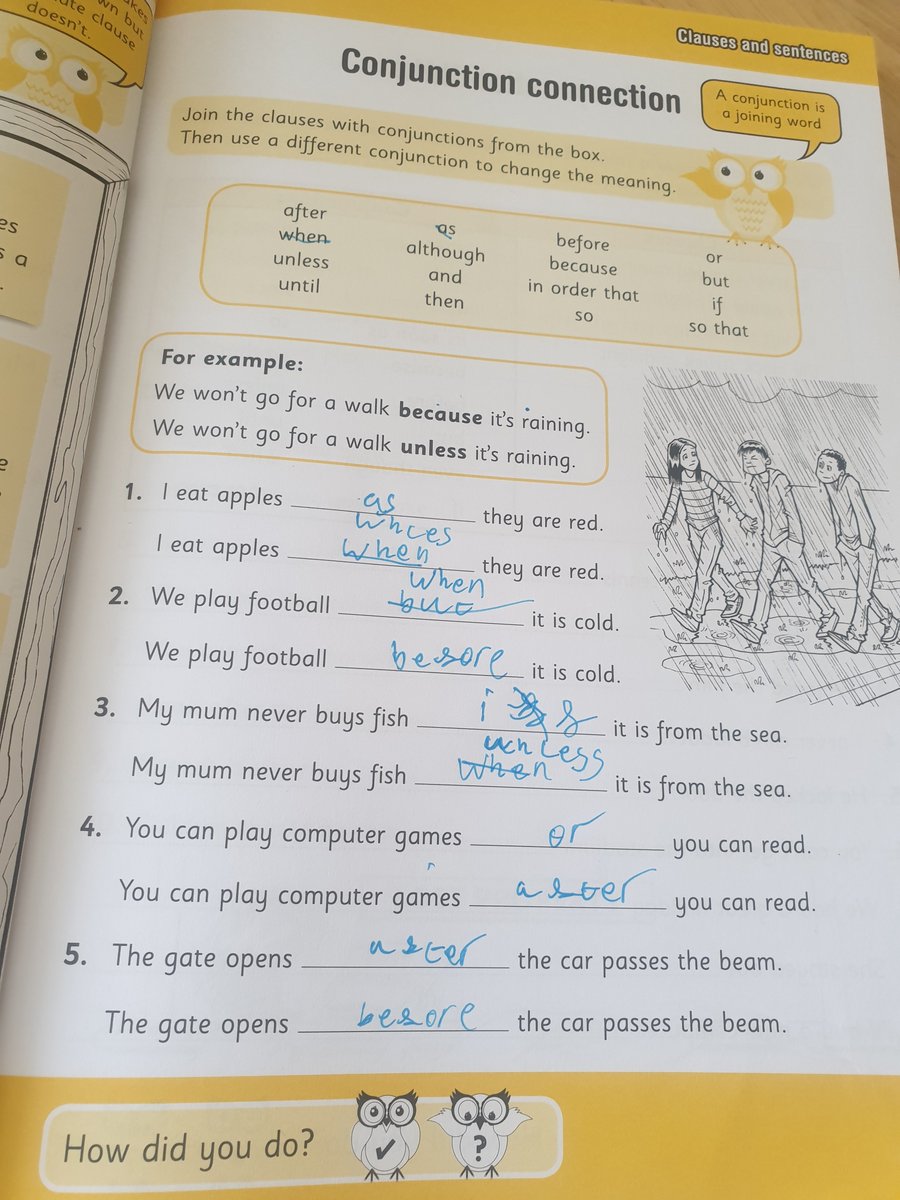 akes
wn but
ate clause
doesn't.
Clauses and sentences
Conjunction connection
A conjunction is
a joining word
Join the clauses with conjunctions from the box.
Then use a different conjunction to change the meaning.
after as before or
when although because but
unless and in order that if
until then so so that
For example:
We won't go for a walk because it's raining.
We won't go for a walk unless it's raining.
1. I eat apples as they are red.
I eat apples when they are red.
when
2. We play football but it is cold.
We play football besore it is cold.
3. My mum never buys fish i it is from the sea.
unless
My mum never buys fish when it is from the sea.
4. You can play computer games or you can read.
You can play computer games aster you can read.
5. The gate opens aster the car passes the beam.
The gate opens besore the car passes the beam.
How did you do? ✓ ?
es
s a